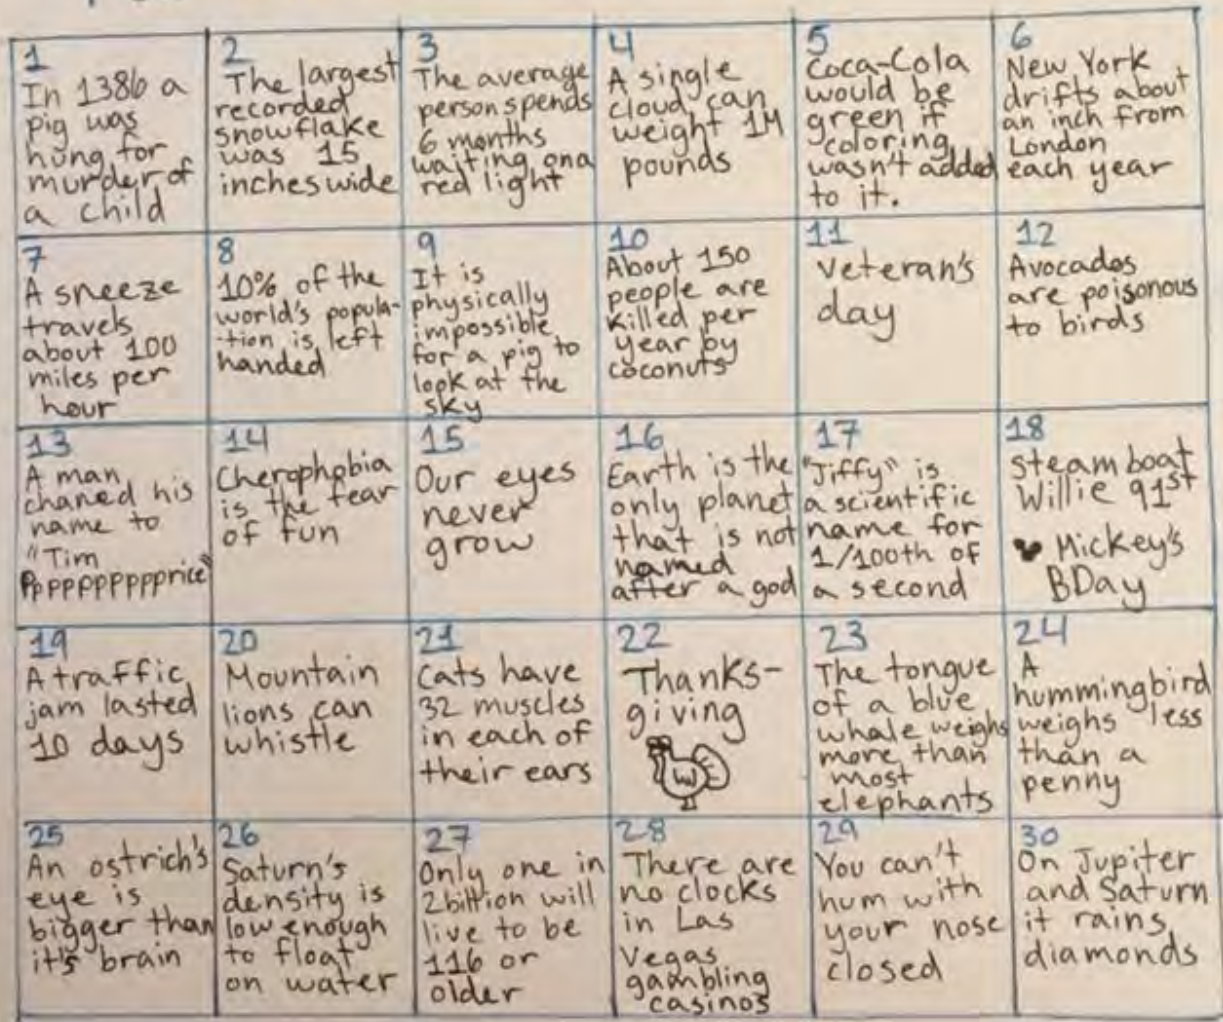 1
In 1386 a
pig was
hung for
murder of
a child
2
The largest
recorded
snowflake
was 15
inches wide
3
The average
person spends
6 months
waiting on a
red light
4
A single
cloud can
weight 1M
pounds
5
Coca-Cola
would be
green if
coloring
wasn't added
to it.
6
New York
drifts about
an inch from
London
each year
7
A sneeze
travels
about 100
miles per
hour
8
10% of the
world's popula-
-tion is left
handed
9
It is
physically
impossible
for a pig to
look at the
sky
10
About 150
people are
killed per
year by
coconuts
11
Veteran's
day
12
Avocados
are poisonous
to birds
13
A man
chaned his
name to
"Tim
Ppppppppppprice"
14
Cherophobia
is the fear
of fun
15
Our eyes
never
grow
16
Earth is the
only planet
that is not
named
after a god
17
"Jiffy" is
a scientific
name for
1/100th of
a second
18
Steam boat
Willie 91st
Mickey's
BDay
19
A traffic
jam lasted
10 days
20
Mountain
lions can
whistle
21
Cats have
32 muscles
in each of
their ears
22
Thanks-
giving
23
The tongue
of a blue
whale weighs
more than
most
elephants
24
A
hummingbird
weighs less
than a
penny
25
An ostrich's
eye is
bigger than
it's brain
26
Saturn's
density is
low enough
to float
on water
27
Only one in
2 billion will
live to be
116 or
older
28
There are
no clocks
in Las
Vegas
gambling
casinos
29
You can't
hum with
your nose
closed
30
On Jupiter
and Saturn
it rains
diamonds